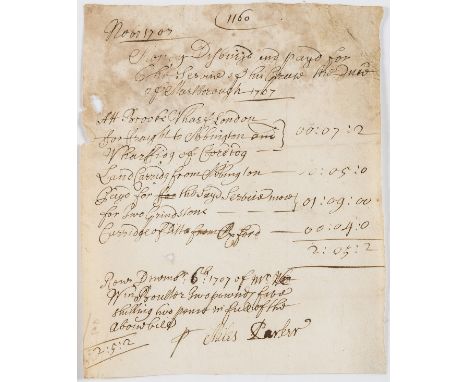 1160
Nov: 1707
Disbursed and payd for
the Service of his Grace the Duke
of Marlborough 1707
Att Brooks Wharf London
for fraight to Abington and
Wharffidg of Cordidg
00:07:2
Land Carridg from Abington
0:05:0
payd for the Sayd Service now
for two Grindstons
01:09:00
Carridg of from Oxford
00:04:0
2:05:2
Decemb: 6th 1707 of Mr
Wm Boulter two pounds five
shilling two pence in full of the
Above bill
2:5:2
Miles Parker